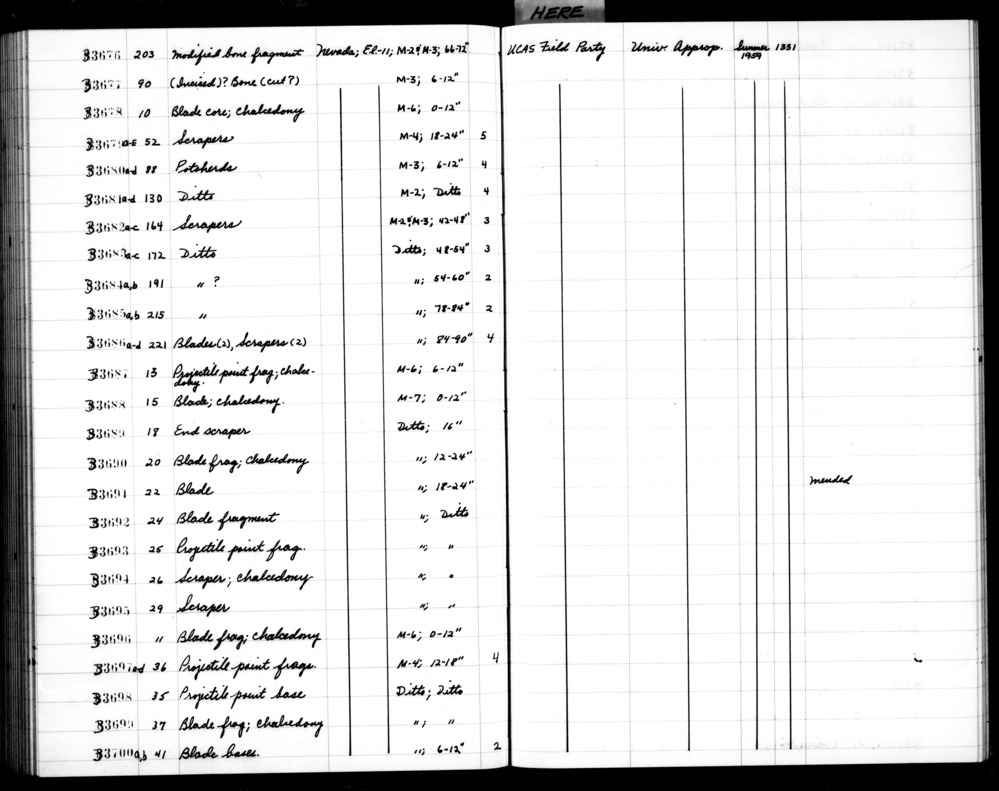 HERE
33676 203 Modified bone fragment Nevada; El-11; M-2&M-3; 66-72" UCAS Field Party Univ. Approp. Summer 1959 1331
33677 90 (Incised)? Bone (cut?) M-3; 6-12"
33678 10 Blade core; chalcedony M-6; 0-12"
33679a-e 52 Scrapers M-4; 18-24" 5
33680a-d 88 Potsherds M-3; 6-12" 4
33681a-d 130 Ditto M-2; Ditto 4
33682a-c 164 Scrapers M-2&M-3; 42-48" 3
33683a-c 172 Ditto Ditto; 48-54" 3
33684a,b 191 " ? "; 54-60" 2
33685a,b 215 " "; 78-84" 2
33686a-d 221 Blades(2), Scrapers(2) "; 84-90" 4
33687 13 Projectile point frag; chalce- M-6; 6-12"
dony.
33688 15 Blade; chalcedony. M-7; 0-12"
33689 18 End scraper Ditto; 16"
33690 20 Blade frag; Chalcedony "; 12-24"
33691 22 Blade "; 18-24" mended
33692 24 Blade fragment "; Ditto
33693 25 Projectile point frag. "; "
33694 26 Scraper; chalcedony "; "
33695 29 Scraper "; "
33696 11 Blade frag; chalcedony M-6; 0-12"
33697a-d 36 Projectile point frags. M-4; 12-18" 4
33698 35 Projectile point base Ditto; Ditto
33699 37 Blade frag; chalcedony "; "
33700a,b 41 Blade bases. "; 6-12" 2